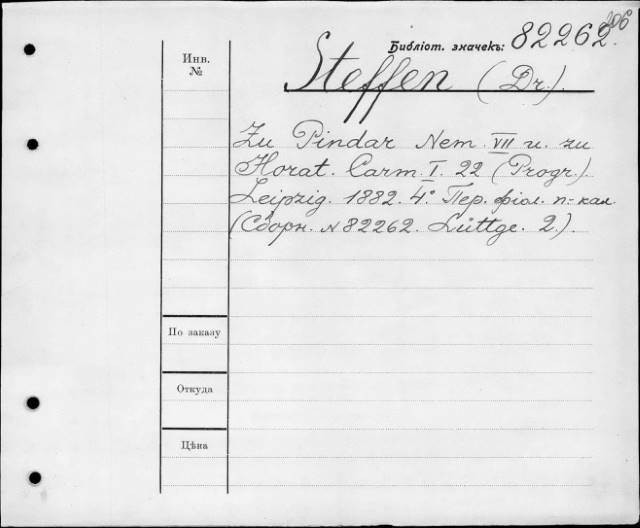 206
Библіот. значекъ: 82262.
Инв. №
Steffen (Dr.).
Zu Pindar Nem. VII u. zu
Horat. Carm. I. 22 (Progr.)
Leipzig. 1882. 4.° Пер. фіол. п.-кал.
(Сборн. № 82262. Lüttge. 2.).
По заказу
Откуда
Цѣна